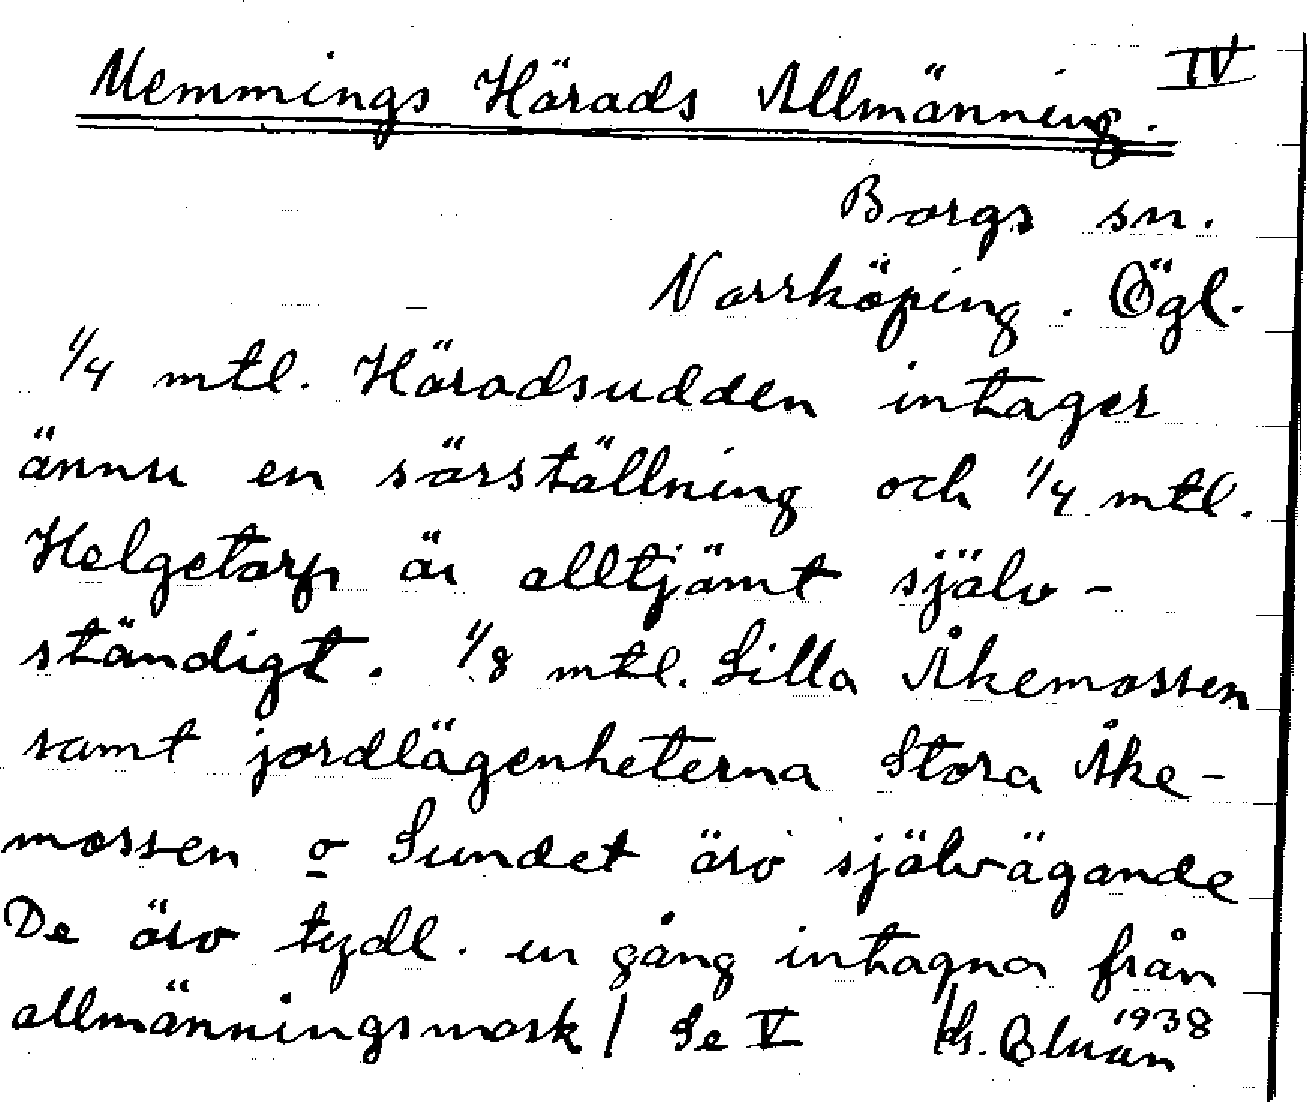 Memmings Härads Allmänning. IV
Borgs sn.
Norrköping. Ögl.
1/4 mtl. Häradsudden intager
ännu en särställning och 1/4 mtl.
Helgetorp är alltjämt själv-
ständigt. 1/8 mtl. Lilla Åkemossen
samt jordlägenheterna Stora Åke-
mossen o Sundet äro självägande
De äro tydl. en gång intagna från
allmänningsmark / Se V
1938